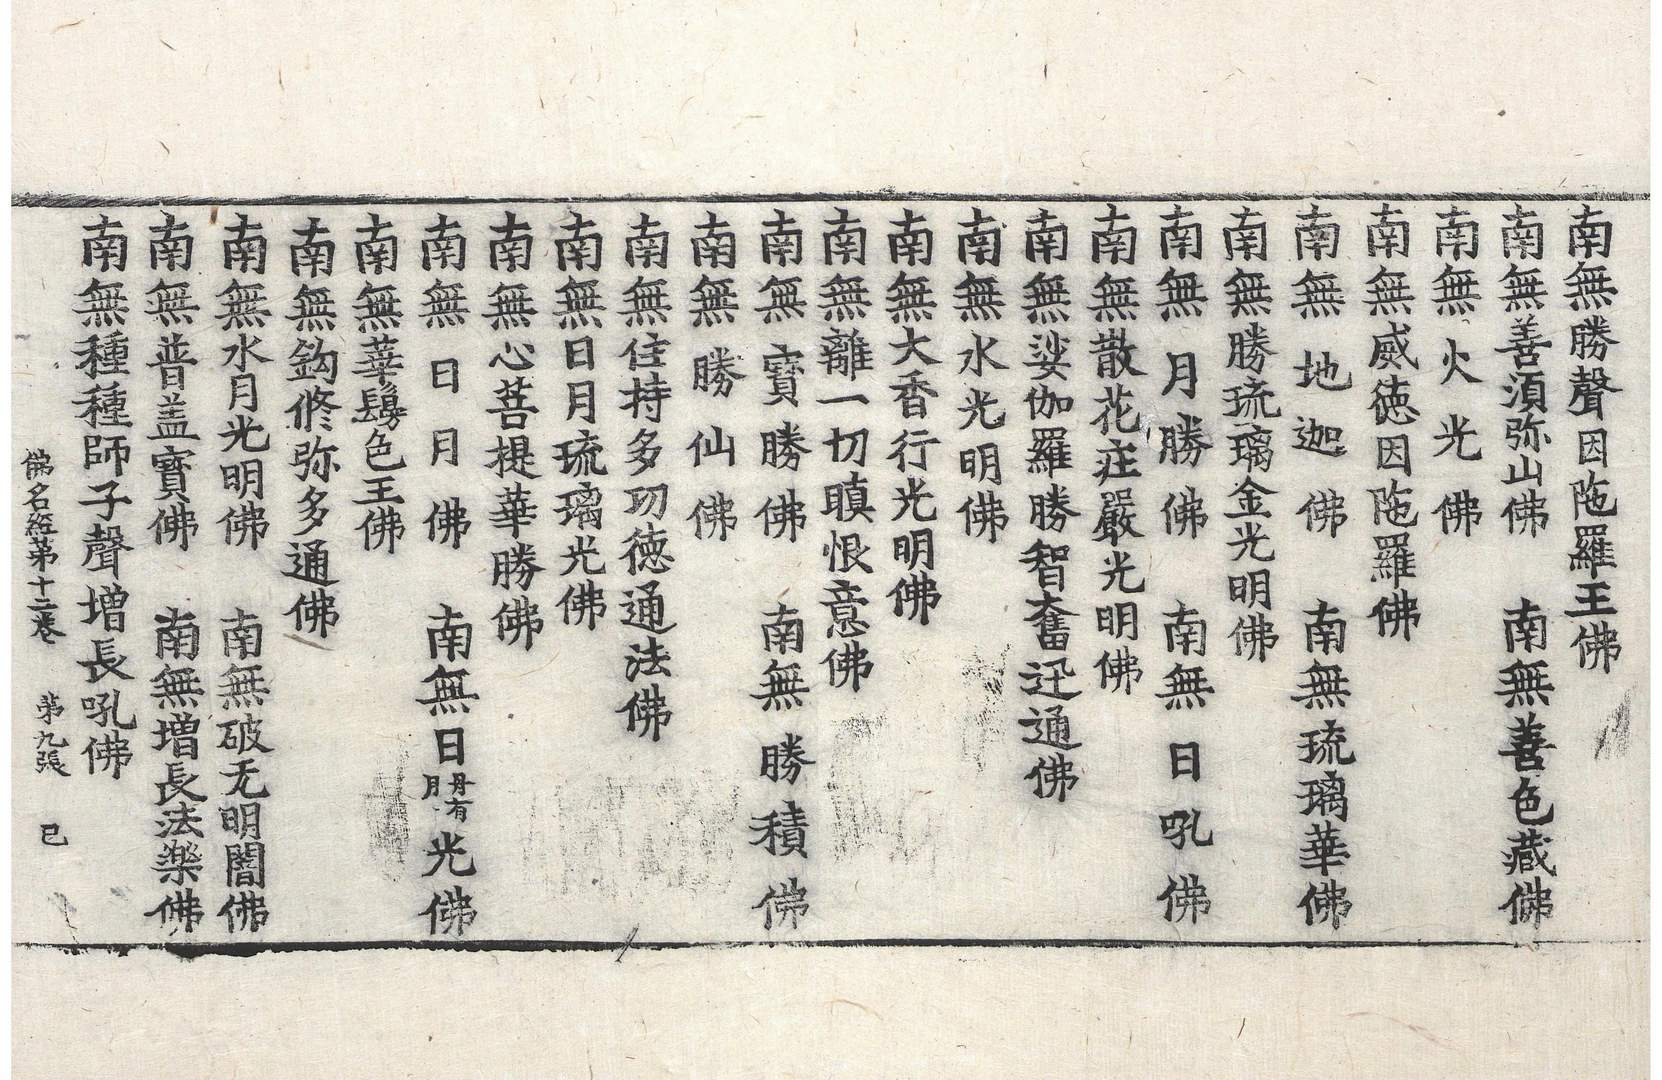 南無勝聲因陁羅王佛
南無善湏弥山佛　南無善色藏佛
南無火光佛
南無威徳因陁羅佛
南無地迦佛　南無琉璃華佛
南無勝琉璃金光明佛
南無月勝佛　南無日吼佛
南無散花莊嚴光明佛
南無娑伽羅勝智奮迅通佛
南無水光明佛
南無大香行光明佛
南無離一切瞋恨意佛
南無寳勝佛　南無勝積佛
南無勝仙佛
南無住持多功徳通法佛
南無日月琉璃光佛
南無心菩提華勝佛
南無日月佛　南無日丹有月光佛
南無華鬘色王佛
南無鈎修弥多通佛
南無水月光明佛　南無破无明闇佛
南無普盖寳佛　南無增長法樂佛
南無種種師子聲增長吼佛
佛名經第十二卷　第九張　巳